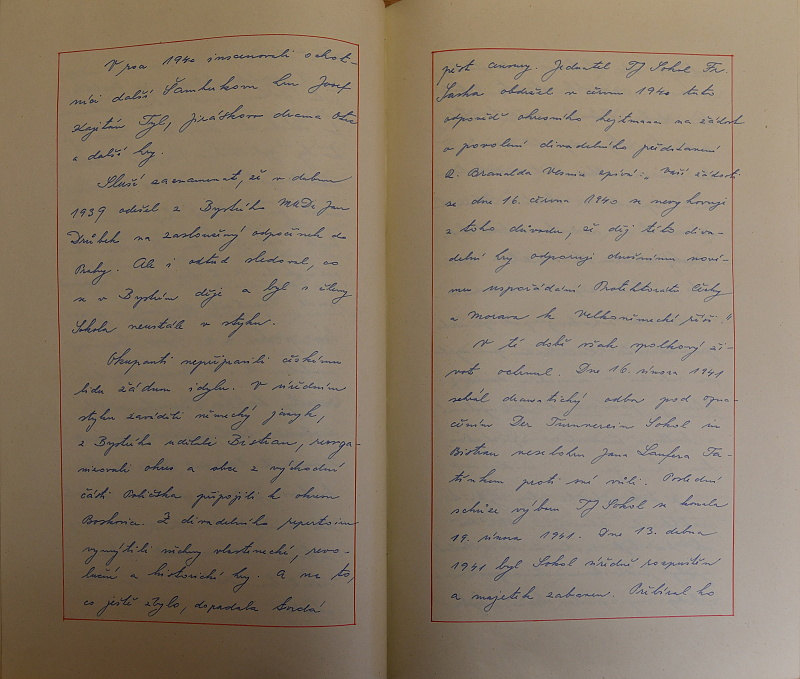 V roce 1940 inscenovali ochot-
níci další Šamberkovu hru Josef
Kajetán Tyl, Jiráskovo drama Otec
a další hry.
Sluší zaznamenat, že v dubnu
1939 odešel z Bystrého MUDr Jan
Drůbek na zasloužený odpočinek do
Prahy. Ale i odtud sledoval, co
se v Bystrém děje a byl s členy
Sokola neustále v styku.
Okupanti nepřipravili českému
lidu žádnou idylu. V úředním
styku zaváděli německý jazyk,
z Bystrého udělali Bistrau, reorga-
nizovali okres a obce z východní
části Poličska připojili k okresu
Boskovice. Z divadelního repertoiru
vymýtili všechny vlastenecké, revo-
luční a historické hry. A na to,
co ještě zbylo, dopadala tvrdá
pěst cenzury. Jednatel TJ Sokol Fr.
Saska obdržel v červnu 1940 tuto
odpověď okresního hejtmana na žádost
o povolení divadelního představení
R. Branalda Vesnice zpívá: „Vaší žádosti
se dne 16. června 1940 nevyhovuje
z toho důvodu, že děj této diva-
delní hry odporuje dnešnímu nové-
mu uspořádání Protektorátu Čechy
a Morava k Velkoněmecké říši."
V té době však spolkový ži-
vot ochrnul. Dne 16. února 1941
sehrál dramatický odbor pod ozna-
čením Der Turnverein Sokol in
Bistrau veselohru Jana Laufera Ta-
tínkem proti své vůli. Poslední
schůze výboru TJ Sokol se konala
19. února 1941. Dne 13. dubna
1941 byl Sokol úředně rozpuštěn
a majetek zabaven. Přebíral ho